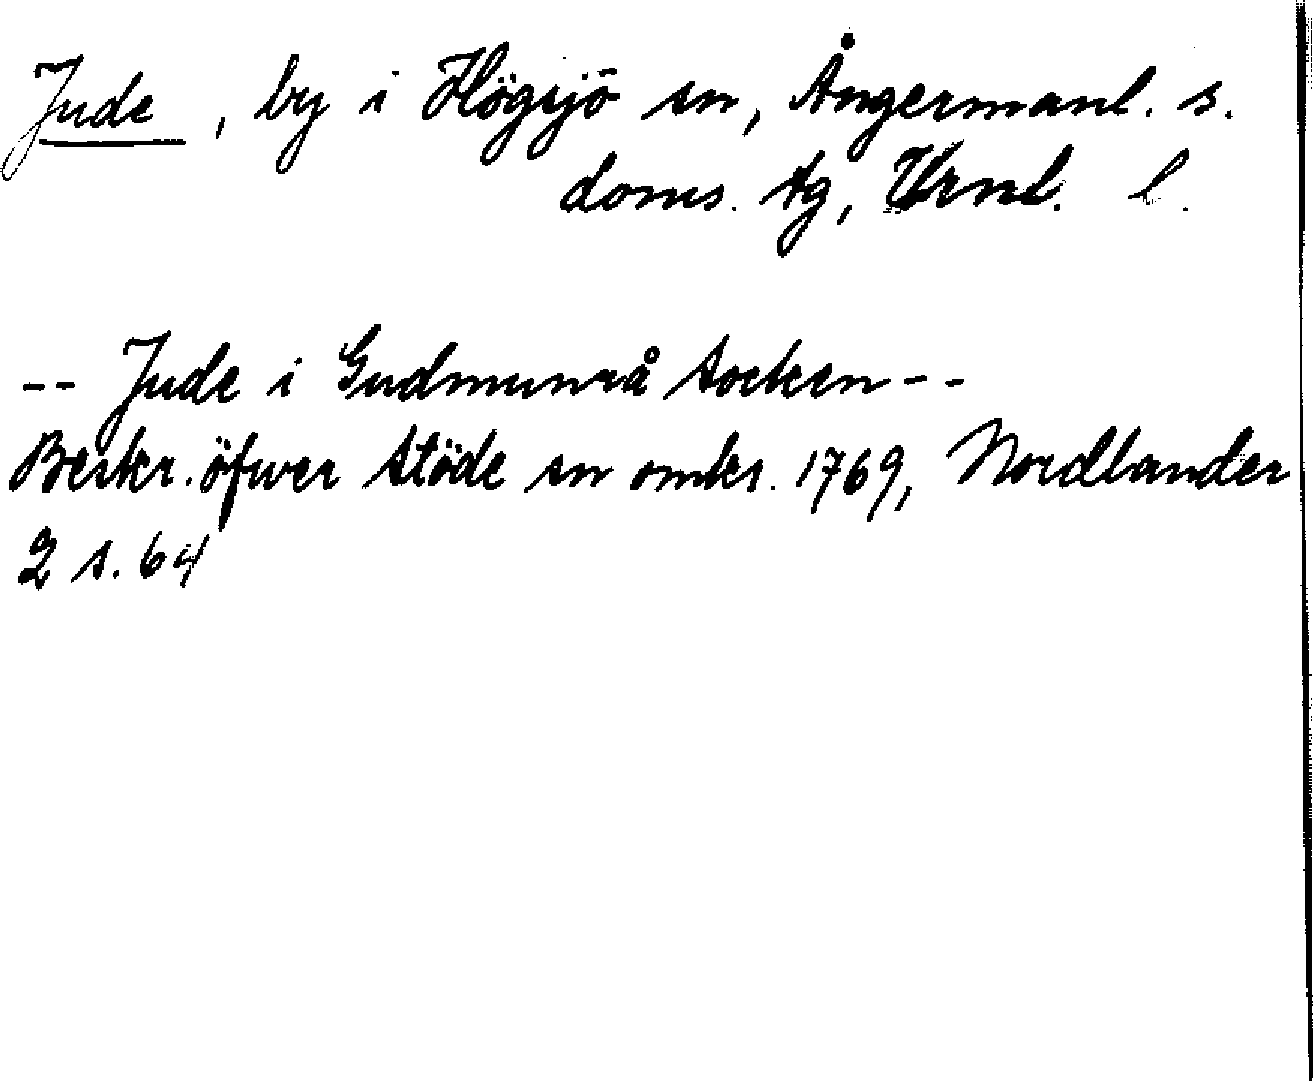 Jude, by i Högsjö sn, Ångermanl. s.
doms. tg, Vrnl. l.
-- Jude i Gudmunrå socken --
Beskr. öfwer Stöde sn omkr. 1769, Nordlander
2 s. 64